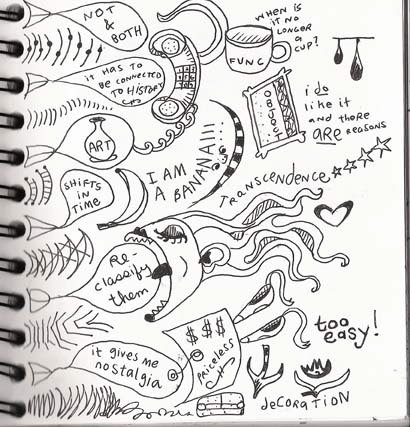 NOT
&
BOTH
WHEN IS
iT NO
LONGER
a
CUP?
FUNC
iT HAS TO
BE CONNECTED
TO HISTORY
i do
like it
and there
ARE REASONS
ART
I AM
A BANANA!!!
SHIFTS
IN
TIME
TRANSCENDENCE
RE-
classify
them
$ $ $
priceless
too
easy!
it gives me
noStalgia
deCORATION